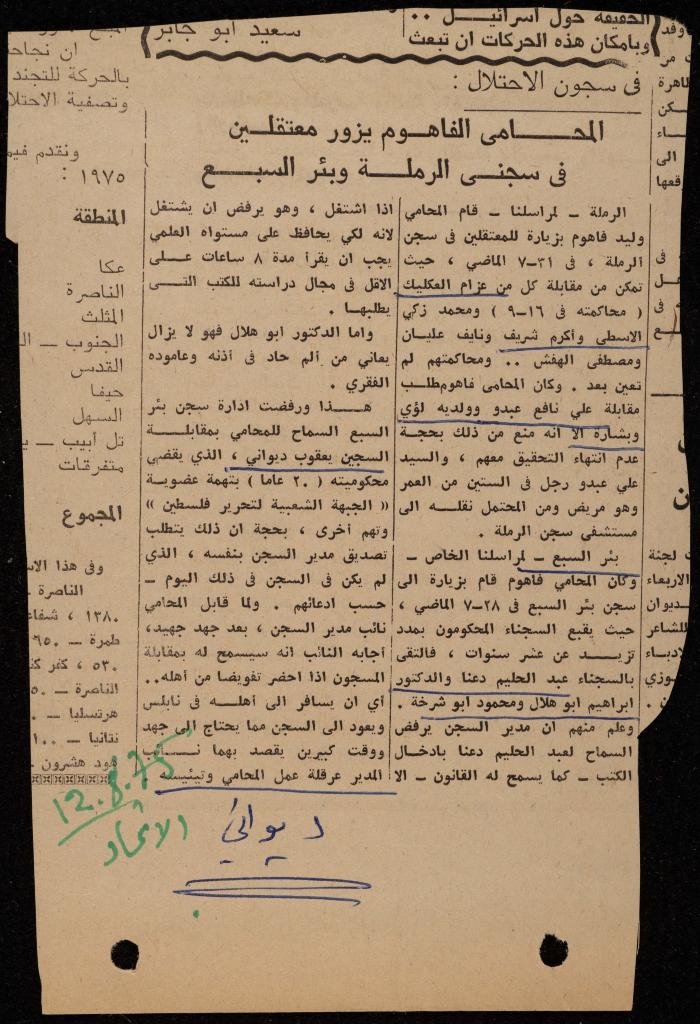 الحقيقة حول اسرائيـــل ٠٠
وبامكان هذه الحركات ان تبعث
سعيد ابو جابر
فى سجون الاحتلال :
المحـــامى الفاهـــوم يزور معتقلـــين
فى سجنـــى الرملـــة وبئر السبـــع
الرملة ـ لمراسلنا ـ قام المحامي
وليد فاهوم بزيارة للمعتقلين في سجن
الرملة ، في ٣١ـ٧ الماضي ، حيث
تمكن من مقابلة كل من عزام العكليك
( محاكمته في ١٦ـ٩ ) ومحمد زكي
الاسطى وأكرم شريف ونايف عليـــان
ومصطفى الهفش ٠٠ ومحاكمتهم لم
تعين بعد ٠ وكان المحامى فاهوم طلب
مقابلة علي نافع عبدو وولديه لؤي
وبشارة الا انه منع من ذلك بحجـة
عدم انتهاء التحقيق معهم ، والسيد
علي عبدو رجل في الستين من العمر
وهو مريض ومن المحتمل نقلـــه الى
مستشفى سجن الرملة ٠
بئر السبع ـ لمراسلنا الخاص ـ
وكان المحامي فاهوم قام بزيارة الى
سجن بئر السبع في ٢٨ـ٧ الماضي ،
حيث يقبع السجناء المحكومون بمدد
تزيـــد عن عشر سنوات ، فالتقى
بالسجناء عبد الحليم دعنا والدكتور
ابراهيم ابو هلال ومحمود ابو شرخة ٠
وعلم منهم ان مدير السجن يرفض
السماح لعبد الحليم دعنا بادخال
الكتب ـ كما يسمح له القانون ـ الا
اذا اشتغل ، وهو يرفض ان يشتغل
لانه لكي يحافظ على مستواه العلمي
يجب ان يقرأ مدة ٨ ساعات علـــى
الاقل في مجال دراسته للكتب التـــى
يطلبهـا ٠
واما الدكتور ابو هلال فهو لا يزال
يعاني من ألم حاد في أذنه وعاموده
الفقري ٠
هـــذا ورفضت ادارة سجن بئر
السبع السماح للمحامي بمقابلـــة
السجين يعقوب ديواني ، الذي يقضي
محكوميته ( ٢٠ عاما ) بتهمة عضويـة
« الجبهة الشعبية لتحرير فلسطين »
وتهم أخرى ، بحجة ان ذلك يتطلب
تصديق مدير السجن بنفسه ، الذي
لم يكن في السجن في ذلك اليوم ـ
حسب ادعائهم ٠ ولما قابل المحامي
نائب مدير السجن ، بعد جهد جهيد،
أجابه النائب انه سيسمح له بمقابلة
المسجون اذا احضر تفويضا من أهله٠٠
أي ان يسافر الى أهلـــه في نابلس
ويعود الى السجن مما يحتاج الى جهد
ووقت كبيرين يقصد بهما نـــائب
المدير عرقلة عمل المحامي وتيئيسه
ان نجاحـ
بالحركة للتجند
وتصفية الاحتلا
ونقدم فيمـ
١٩٧٥ :
المنطقة
عكا
الناصرة
المثلث
الجنوب ـ
القدس
حيفا
السهل
تل أبيب ـ
متفرقات
المجموع
وفى هذا الاسـ
الناصرة
١٣٨٠ ، شفاء
طمرة ـ ٦٥٠
٥٣٠ ، كفر كنـ
الناصرة ـ ٥٠
هرتسليا ـ
نتانيا ـ ١٠٠
هود هشرون
وفد
مر
ظاهرة
كن
اء
الى
قعها
فى
ـل
فى
ـع
لجنة
الاربعاء
ديوان
للشاعر
لادباء
وزي
12.8.75
الاتحاد
ديواني